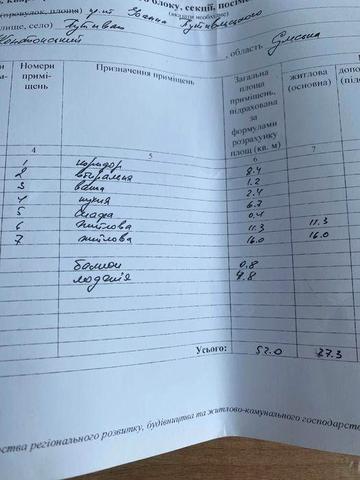 блоку, секції,
(провулок, площа) вул. Іоанна Путивльського
(вказати необхідне)
лище, село) Путивль
Конотопський , область Сумська
Номери приміщень Призначення приміщень Загальна площа приміщень, підрахована за формулами розрахунку площ (кв. м) житлова (основна)
4 5 6 7
1 коридор 8.4
2 вбиральня 1.2
3 ванна 2.4
4 кухня 6.7
5 кладова 0.4
6 житлова 11.3 11.3
7 житлова 16.0 16.0
балкон 0.8
лоджія 4.8
Усього: 52.0 27.3
рства регіонального розвитку, будівництва та житлово-комунального господарств